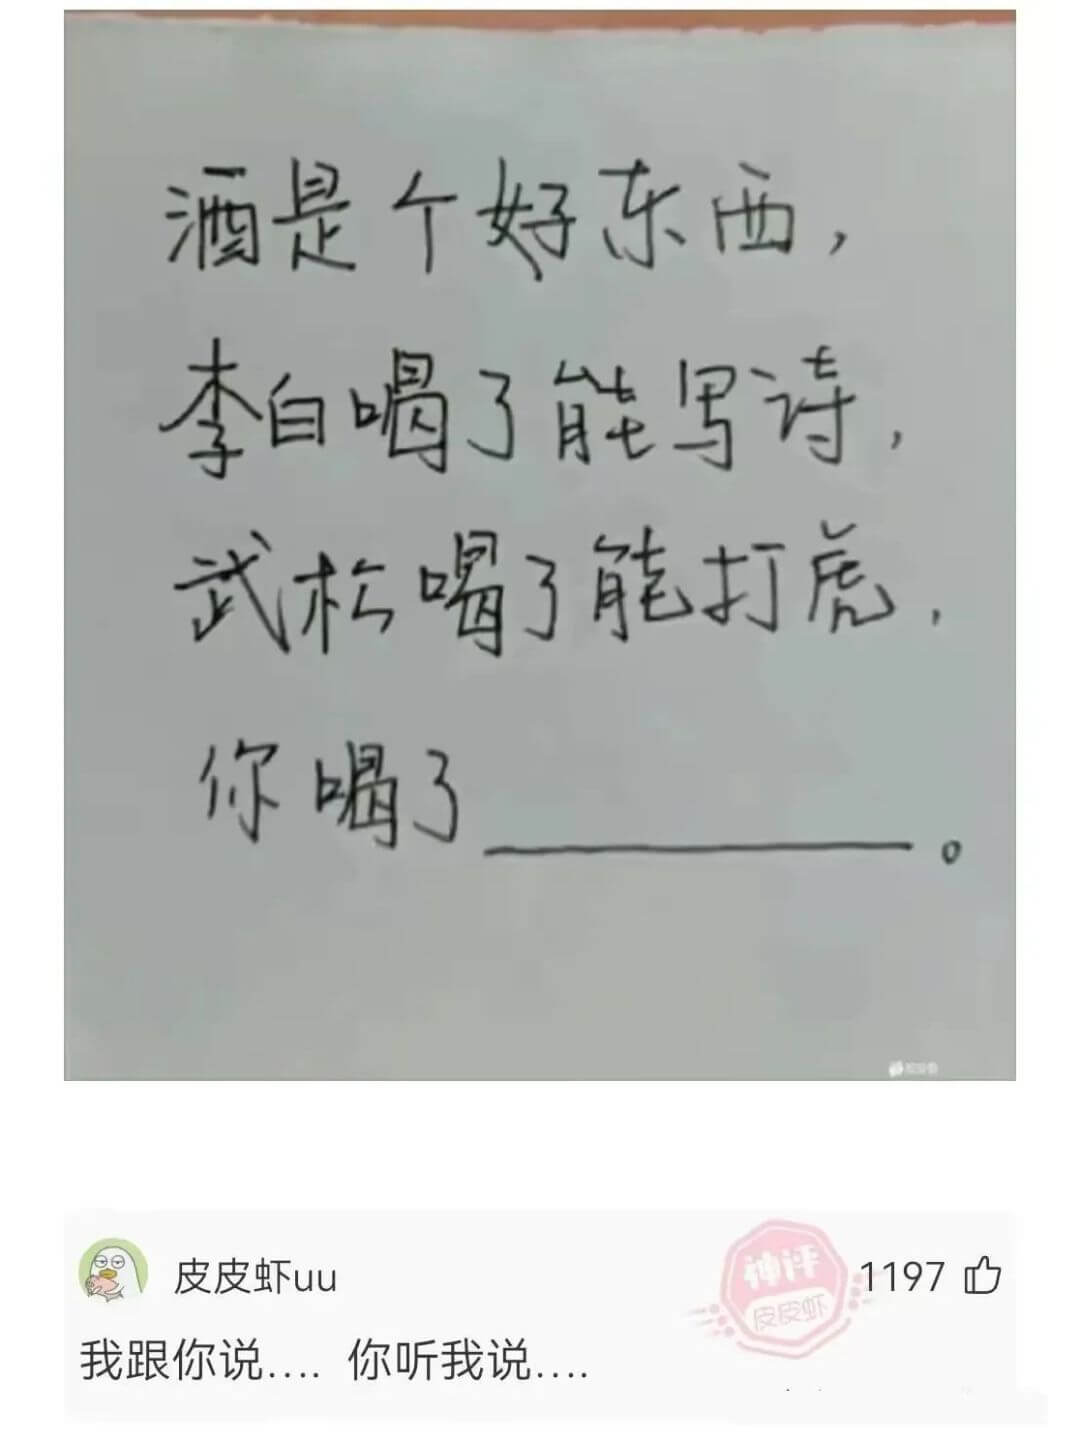 酒是个好东西，
李白喝了能写诗，
武松喝了能打虎，
你喝了__________。
皮皮虾uu
神评
皮皮虾
1197
我跟你说…. 你听我说….